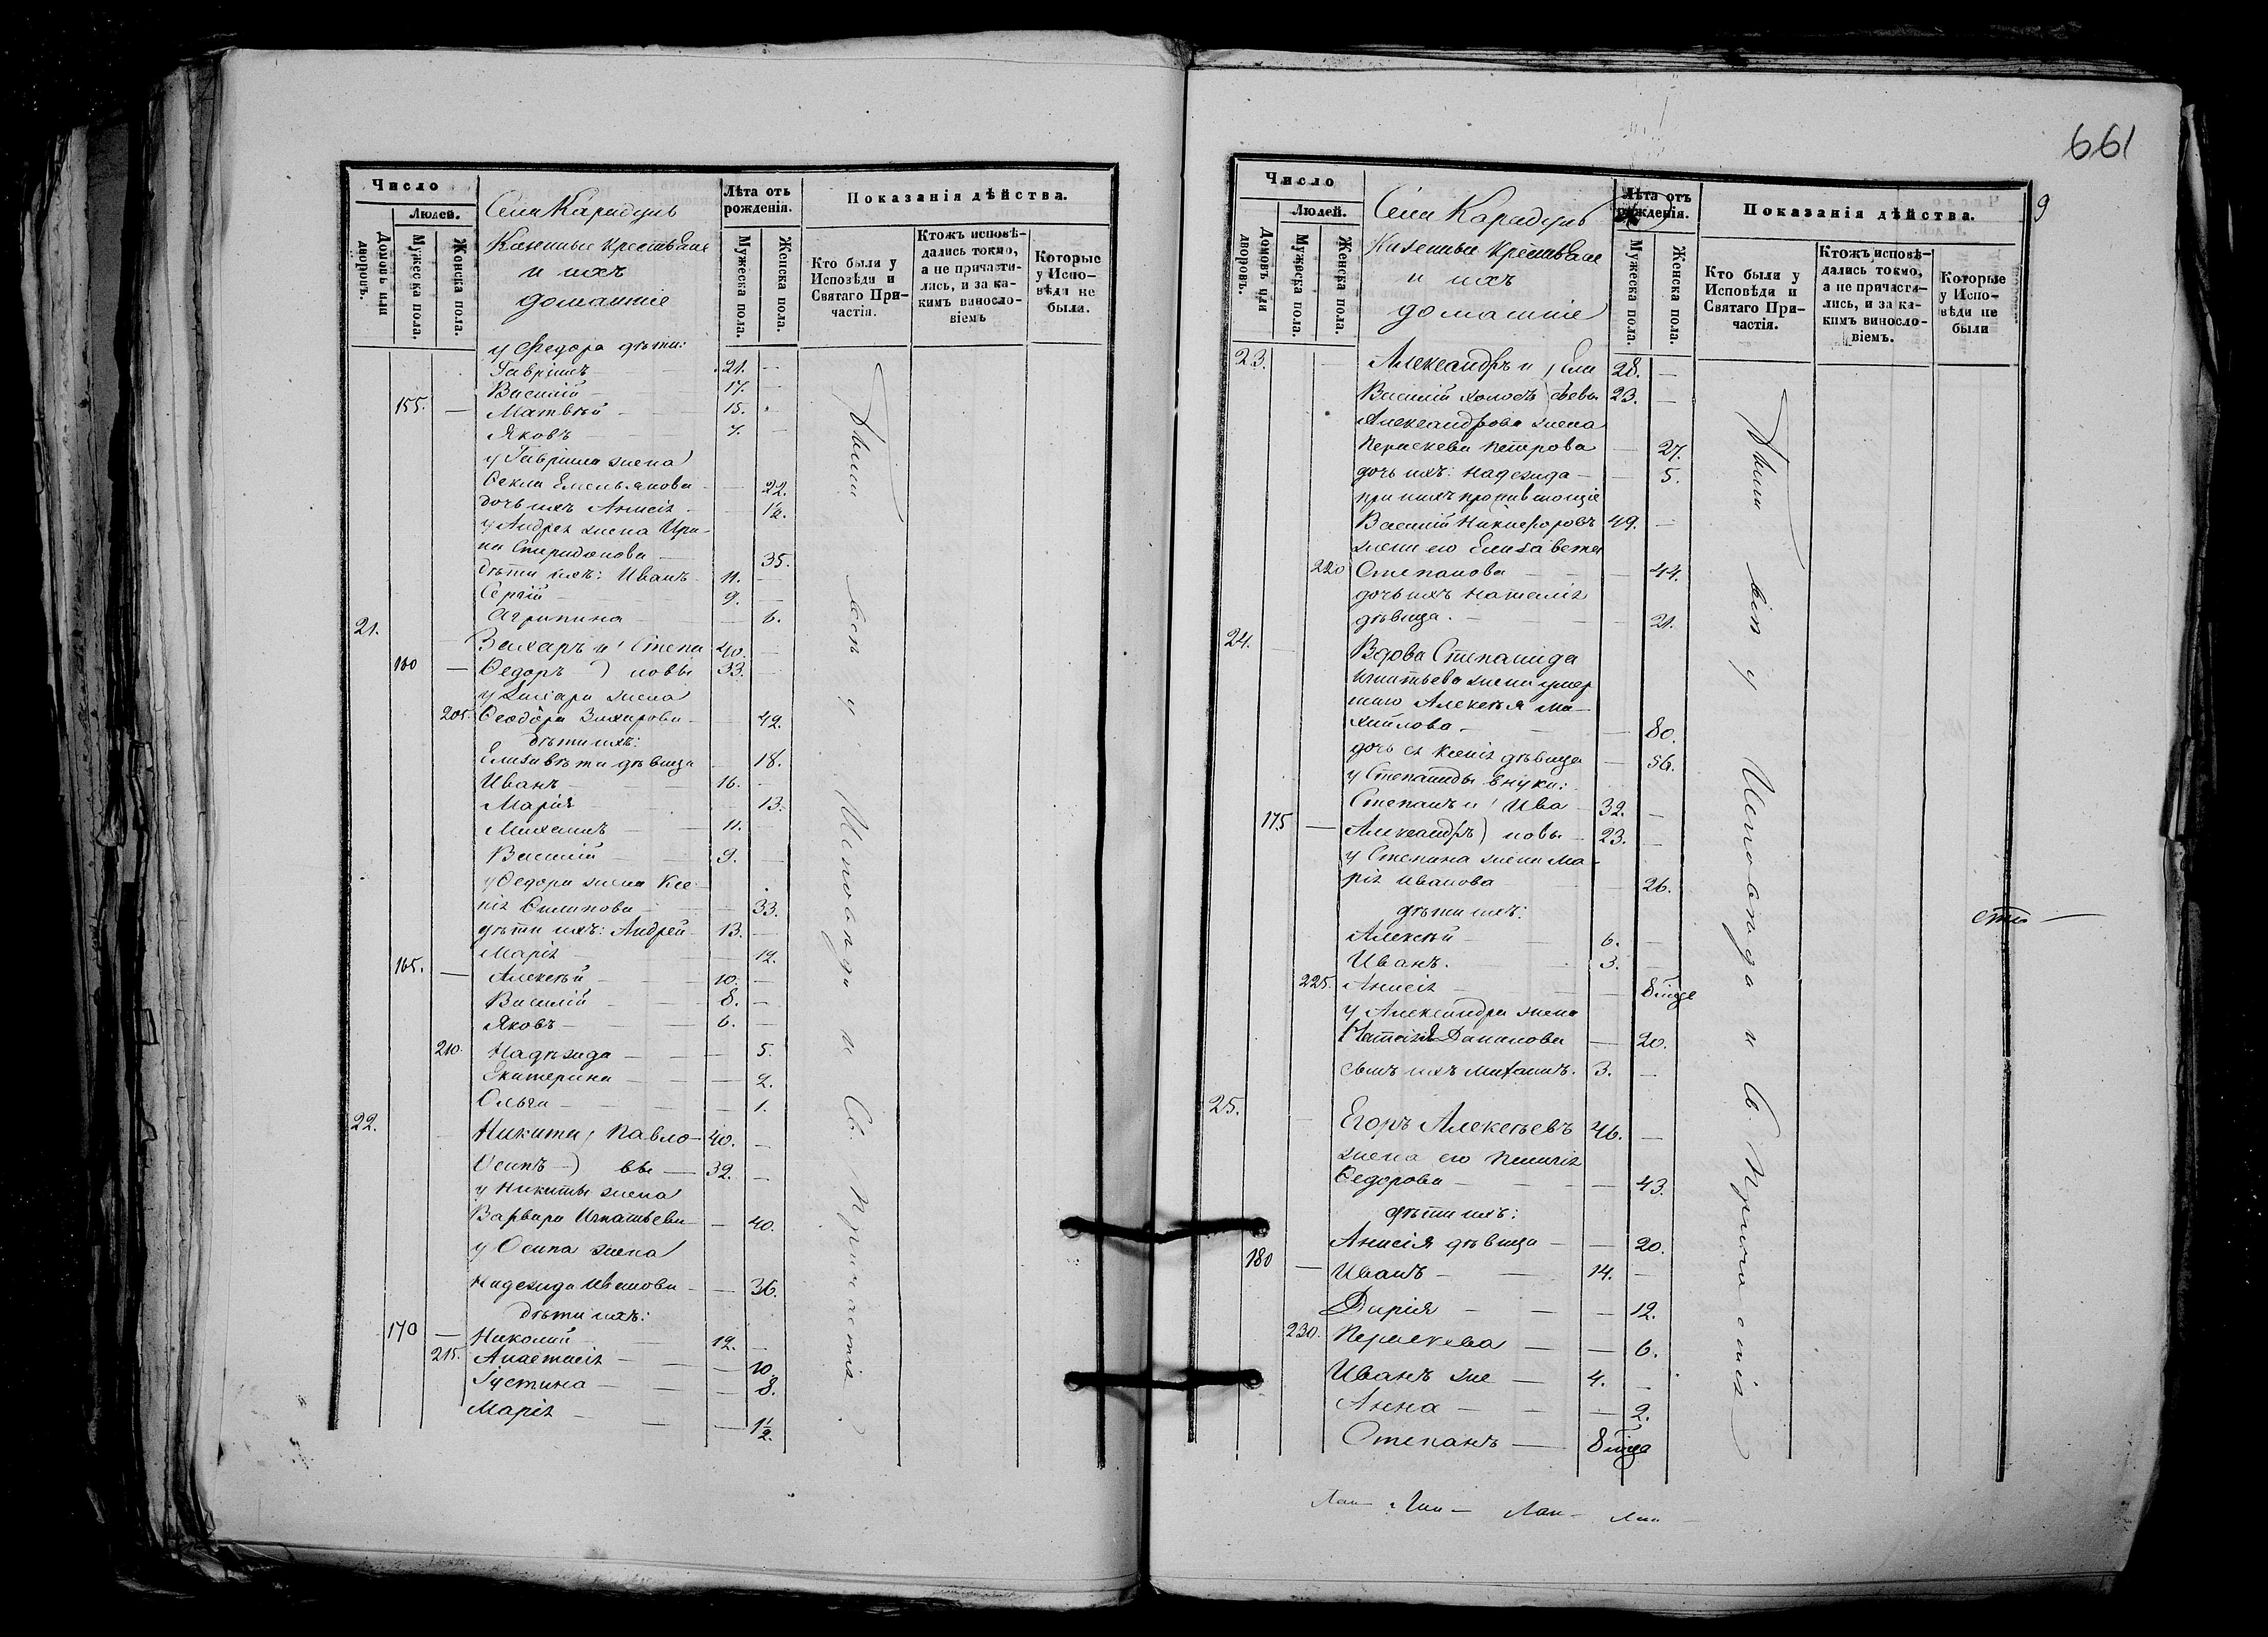 Число
Людей.
Домовъ или дворовъ.
Мужеска пола.
Женска пола.
Села Карадулъ
Казенные крестьяне
и ихъ
домашніе
Лѣта отъ рожденія.
Мужеска пола.
Женска пола.
Показанія дѣйства.
Кто были у Исповѣди и Святаго Причастія.
Ктожъ исповѣдались токмо, а не причастились, и за какимъ винословіемъ
Которые у Исповѣди не были.
у Федора дѣти:
Гавріилъ 21.
Василій 17.
155. Матвѣй 15.
Яковъ 7.
у Гавріила жена
Ѳекла Емельянова 22.
дочь ихъ Анисія 1/2.
у Андрея жена Ири-
на Спиридонова 35.
дѣти ихъ: Иванъ 11.
Сергій 9.
Агрипина 6.
21. Захаръ и Степа 40.
160 Ѳедоръ новы 33.
у Захара жена
205. Ѳеодора Захарова 42.
дѣти ихъ:
Елизавета дѣвица 18.
Иванъ 16.
Марія 13.
Михаилъ 11.
Василій 9.
у Ѳедора жена Ксе-
нія Филипова 33.
дѣти ихъ: Андрей 13.
Марія 12.
165. Алексѣй 10.
Василій 8.
Яковъ 6.
210. Надѣжда 5.
Екатерина 2.
Ольга 1.
22. Никита Павло 40.
Осипъ вы 32.
у Никиты жена
Варвара Игнатьева 40.
у Осипа жена
Надежда Иванова 36.
дѣти ихъ:
170 Николай 12.
215. Анастасія 10.
Іустина 8.
Марія 1 1/2.
были всѣ у Исповѣди и Св. Причастія.
661
9
Число
Людей.
Домовъ или дворовъ.
Мужеска пола.
Женска пола.
Села Карадулъ
Казенные крестьяне
и ихъ
домашніе
Лѣта отъ рожденія.
Мужеска пола.
Женска пола.
Показанія дѣйства.
Кто были у Исповѣди и Святаго Причастія.
Ктожъ исповѣдались токмо, а не причастились, и за какимъ винословіемъ.
Которые у Исповѣди не были
23. Александръ и Ели 28.
Василій холостъ сѣевы 23.
Александрова жена
Пераскева Петрова 27.
дочь ихъ: Надежда 5.
при нихъ проживающіе
Василій Никифоровъ 49.
жена его Елизавета
220 Степанова 44.
дочь ихъ Наталія
дѣвица. 21.
24. Вдова Степанида
Игнатьева жена умер
шаго Алексѣя Ми-
хайлова 80.
дочь ея Ксенія дѣвица 56.
у Степаниды внуки:
Степанъ и Ива 32.
175 Александръ новы 23.
у Степана жена Ма-
рія Иванова 26.
дѣти ихъ:
Алексѣй 6.
Иванъ. 3.
225. Анисія 8 мѣся
у Александра жена
20.
сынъ ихъ Михаилъ. 3.
25. Егоръ Алексѣевъ 46.
жена его Пелагія
Ѳедорова 43.
дѣти ихъ:
Анисія дѣвица 20.
180 Иванъ 14.
Дарія 12.
230. Пераскева 6.
Иванъ же 4.
Анна 2.
Степанъ 8 мѣся
были всѣ у Исповѣди и Св. Причастія